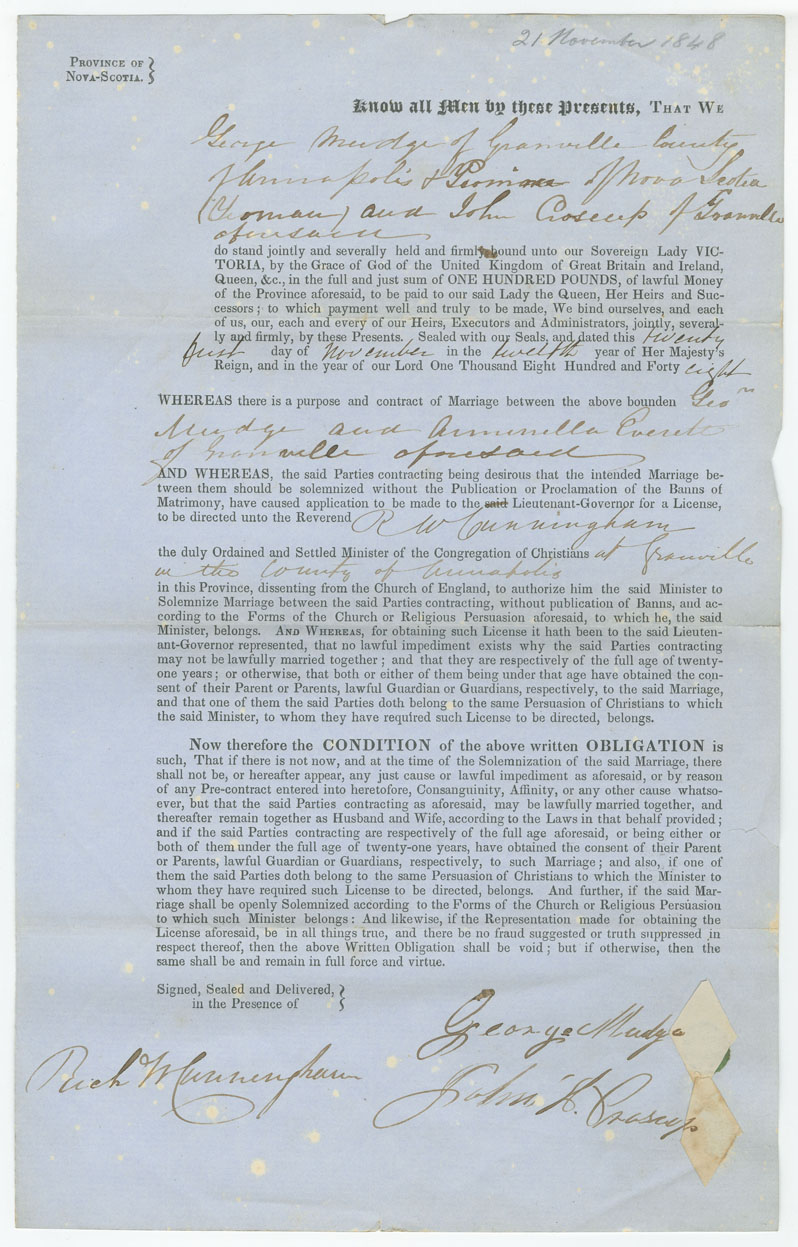 21 November 1848
Province of
Nova-Scotia.
Know all Men by these Presents, That We
George Mudge of Granville County
of Annapolis & of Nova Scotia
(Yeoman) and John Croscup of Granville
aforesaid
do stand jointly and severally held and firmly bound unto our Sovereign Lady VIC-
TORIA, by the Grace of God of the United Kingdom of Great Britain and Ireland,
Queen, &c., in the full and just sum of ONE HUNDRED POUNDS, of lawful Money
of the Province aforesaid, to be paid to our said Lady the Queen, Her Heirs and Suc-
cessors; to which payment well and truly to be made, We bind ourselves, and each
of us, our, each and every of our Heirs, Executors and Administrators, jointly, several-
ly and firmly, by these Presents. Sealed with our Seals, and dated this twenty
first day of November in the twelfth year of Her Majesty's
Reign, and in the year of our Lord One Thousand Eight Hundred and Forty eight
WHEREAS there is a purpose and contract of Marriage between the above bounden Geo
Mudge and Armenella Everett
of Granville aforesaid
AND WHEREAS, the said Parties contracting being desirous that the intended Marriage be-
tween them should be solemnized without the Publication or Proclamation of the Banns of
Matrimony, have caused application to be made to the said Lieutenant-Governor for a License,
to be directed unto the Reverend R W Cunningham
the duly Ordained and Settled Minister of the Congregation of Christians at Granville
in the County of Annapolis
in this Province, dissenting from the Church of England, to authorize him the said Minister to
Solemnize Marriage between the said Parties contracting, without publication of Banns, and ac-
cording to the Forms of the Church or Religious Persuasion aforesaid, to which he, the said
Minister, belongs. And Whereas, for obtaining such License it hath been to the said Lieuten-
ant-Governor represented, that no lawful impediment exists why the said Parties contracting
may not be lawfully married together; and that they are respectively of the full age of twenty-
one years; or otherwise, that both or either of them being under that age have obtained the con-
sent of their Parent or Parents, lawful Guardian or Guardians, respectively, to the said Marriage,
and that one of them the said Parties doth belong to the same Persuasion of Christians to which
the said Minister, to whom they have required such License to be directed, belongs.
Now therefore the CONDITION of the above written OBLIGATION is
such, That if there is not now, and at the time of the Solemnization of the said Marriage, there
shall not be, or hereafter appear, any just cause or lawful impediment as aforesaid, or by reason
of any Pre-contract entered into heretofore, Consanguinity, Affinity, or any other cause whatso-
ever, but that the said Parties contracting as aforesaid, may be lawfully married together, and
thereafter remain together as Husband and Wife, according to the Laws in that behalf provided;
and if the said Parties contracting are respectively of the full age aforesaid, or being either or
both of them under the full age of twenty-one years, have obtained the consent of their Parent
or Parents, lawful Guardian or Guardians, respectively, to such Marriage; and also, if one of
them the said Parties doth belong to the same Persuasion of Christians to which the Minister to
whom they have required such License to be directed, belongs. And further, if the said Mar-
riage shall be openly Solemnized according to the Forms of the Church or Religious Persuasion
to which such Minister belongs: And likewise, if the Representation made for obtaining the
License aforesaid, be in all things true, and there be no fraud suggested or truth suppressed in
respect thereof, then the above Written Obligation shall be void; but if otherwise, then the
same shall be and remain in full force and virtue.
Signed, Sealed and Delivered,
in the Presence of
George Mudge
Rich W Cunningham
John Croscup